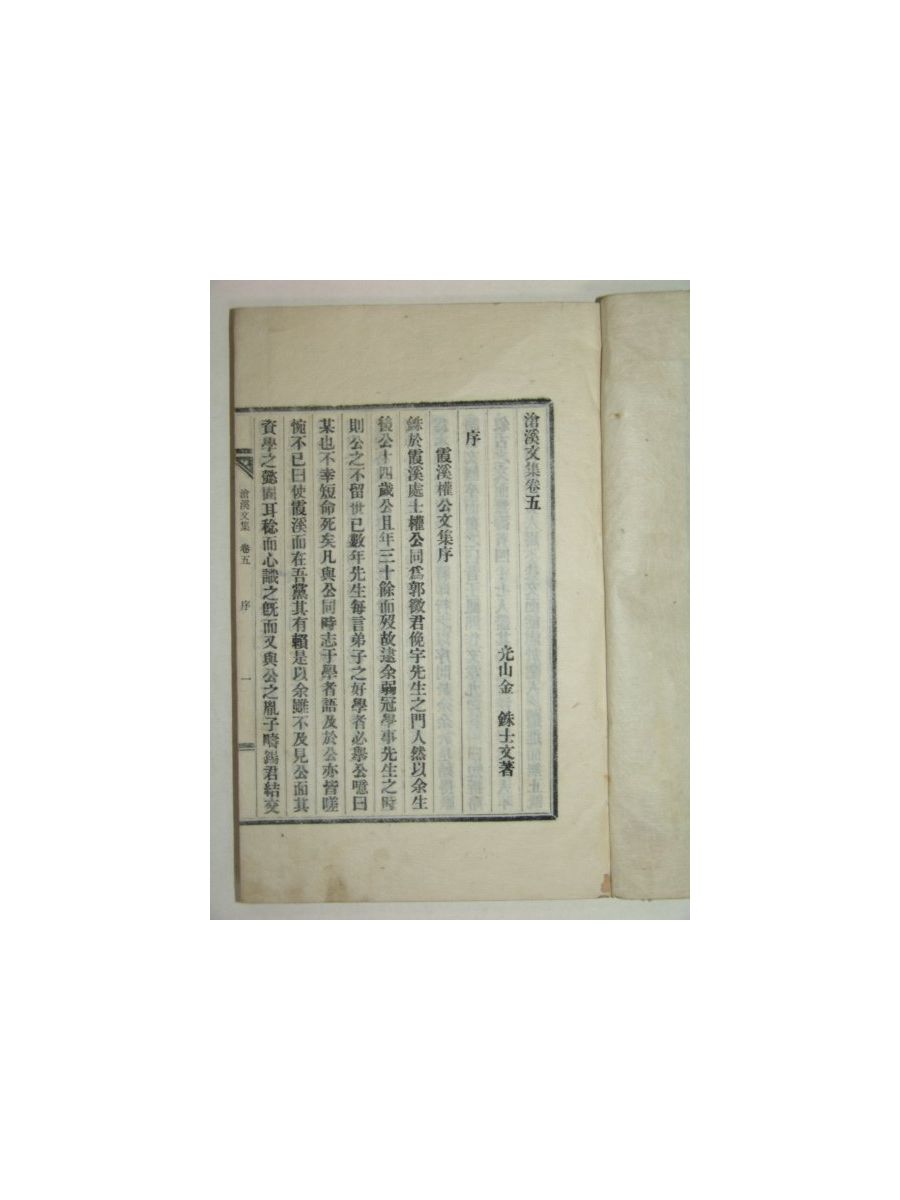 滄溪文集卷五
光山金 銖士文著
序
霞溪權公文集序
銖於霞溪處士權公同爲郭徵君俛宇先生之門人然以余生
後公十四歲公且年三十餘而歿故逮余弱冠學事先生之時
則公之不留世已數年先生每言弟子之好學者必擧公噫曰
某也不幸短命死矣凡與公同時志于學者語及於公亦皆嗟
惋不已曰使霞溪而在吾黨其有賴是以余雖不及見公面其
資學之懿固耳稔而心識之旣而又與公之胤子疇錫君結交
滄溪文集 卷五 序 一